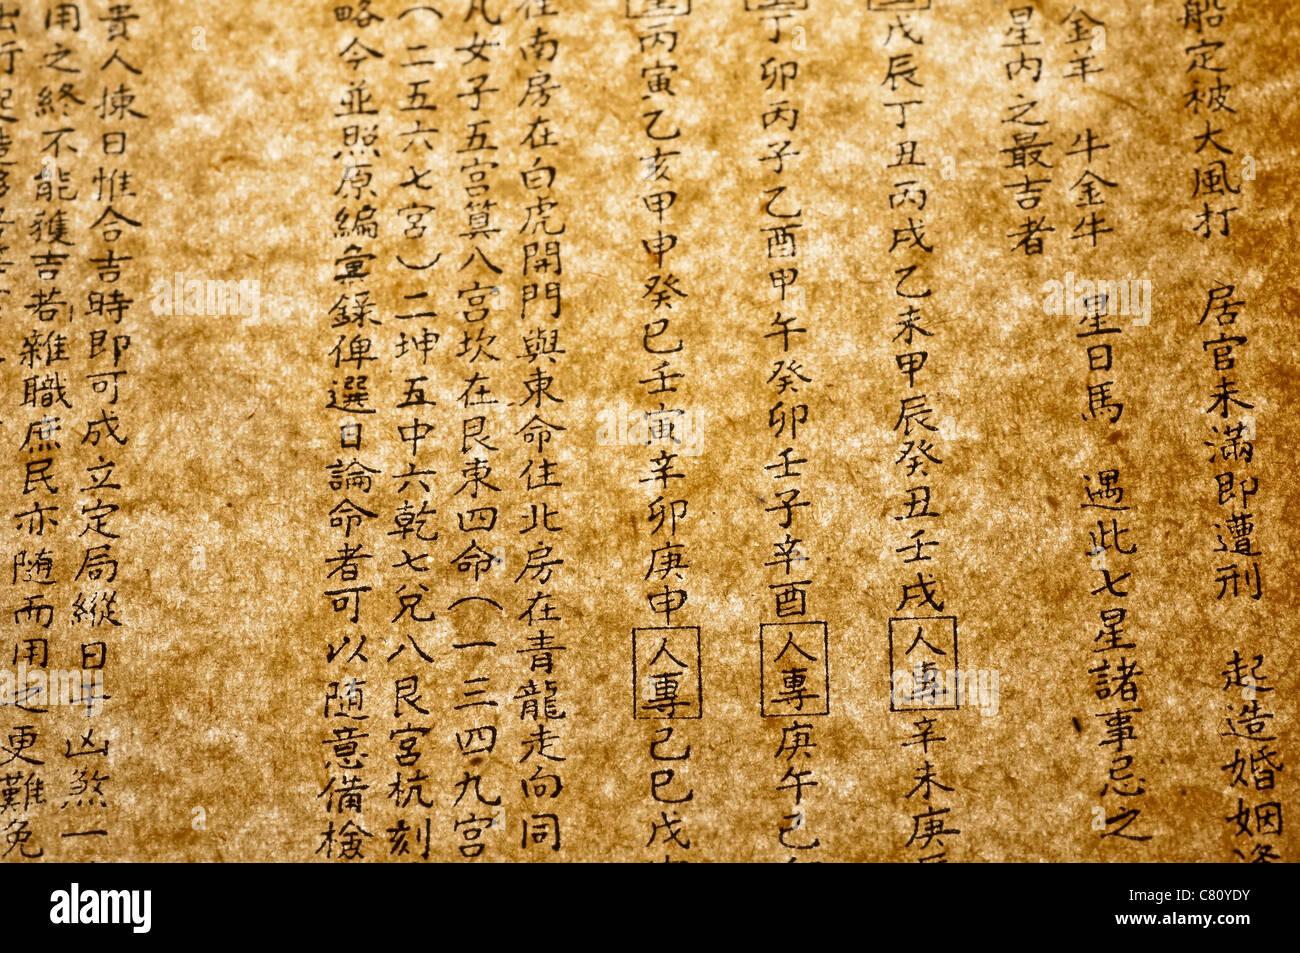 船定被大風打 居官未滿即遭刑 起造婚姻逢
金羊 牛金牛 星日馬 遇此七星諸事忌之
星內之最吉者
戊辰丁丑丙戌乙未甲辰癸丑壬戌人專辛未庚辰
丁卯丙子乙酉甲午癸卯壬子辛酉人專庚午己
丙寅乙亥甲申癸巳壬寅辛卯庚申人專己巳戊
在南房在白虎開門與東命住北房在青龍走向同
凡女子五宮算八宮坎在艮東四命(一三四九宮
(二五六七宮)二坤五中六乾七兌八艮宮杭刻
略今並照原編彙錄俾選日論命者可以隨意備檢
貴人揀日惟合吉時即可成立定局縱日干凶煞一
用之終不能獲吉若雜職庶民亦隨而用之更難免
出行
alamy
alamy
alamy
alamy
alamy
alamy
Image ID: C80YDY
www.alamy.com